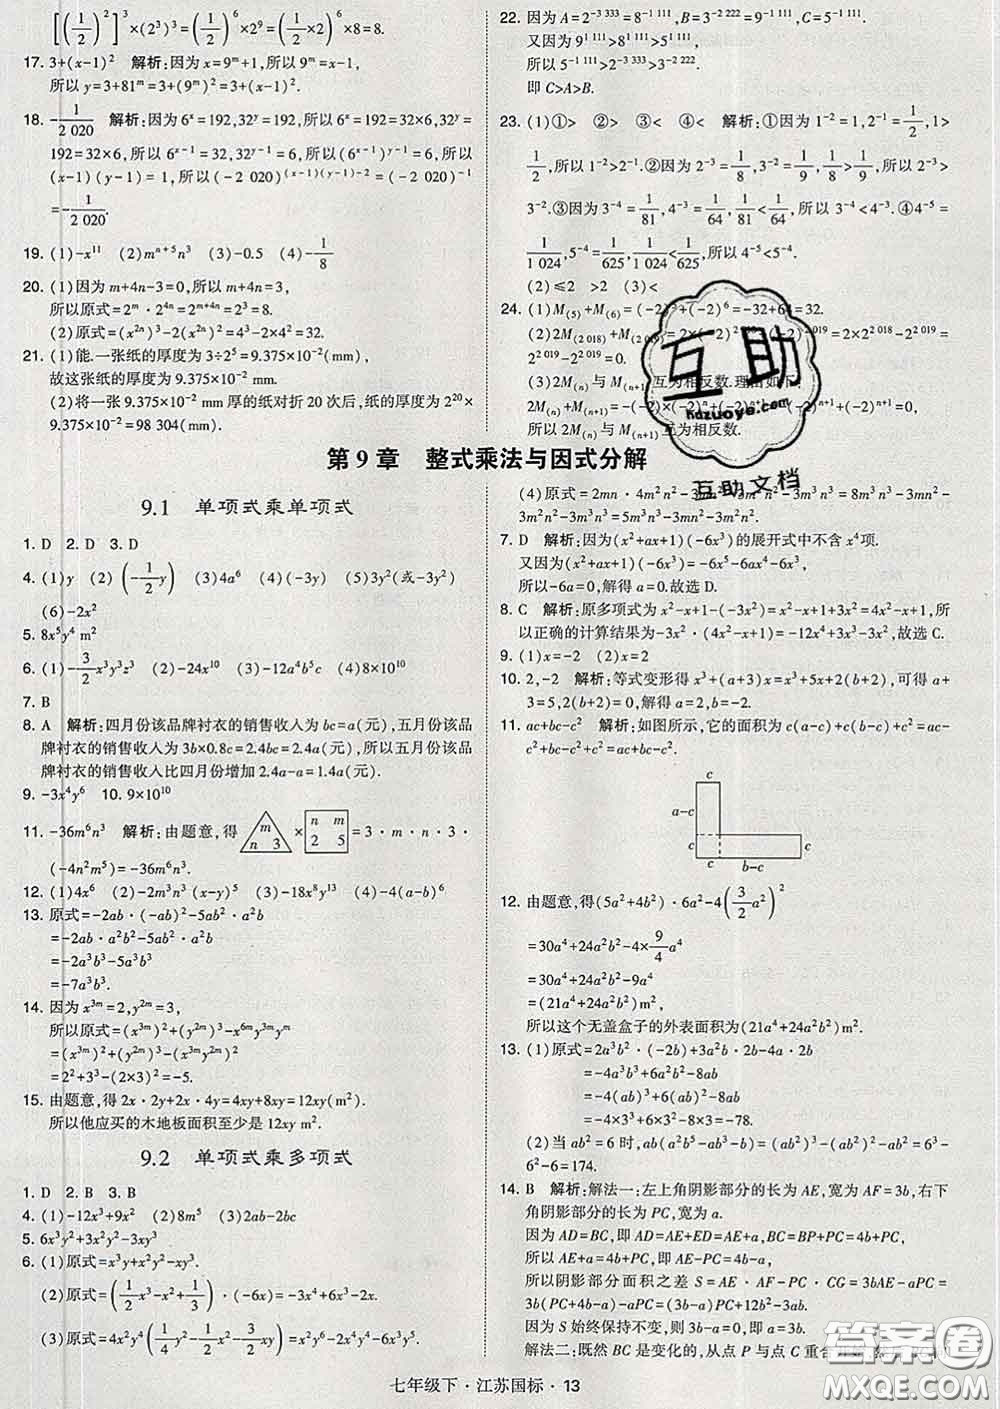 [(1/2)²]³×(2³)³=(1/2)⁶×2⁹=(1/2×2)⁶×8=8.
17. 3+(x-1)² 解析:因为 x=9ᵐ+1,所以 9ᵐ=x-1,
所以 y=3+81ᵐ=3+(9ᵐ)²=3+(x-1)².
18. -1/2 020 解析:因为 6ˣ=192,32ʸ=192,所以 6ˣ=192=32×6,32ʸ=
192=32×6,所以 6ˣ⁻¹=32,32ʸ⁻¹=6,所以(6ˣ⁻¹)ʸ⁻¹=6,所以
(x-1)(y-1)=1,所以(-2 020)⁽ˣ⁻¹⁾⁽ʸ⁻¹⁾⁻²=(-2 020)⁻¹
=-1/2 020.
19. (1)-x¹¹ (2)mⁿ⁺⁵n³ (3)-0.5 (4)-1/8
20. (1)因为 m+4n-3=0,所以 m+4n=3,
所以原式=2ᵐ·2⁴ⁿ=2ᵐ⁺⁴ⁿ=2³=8.
(2)原式=(x²ⁿ)³-2(x²ⁿ)²=4³-2×4²=32.
21. (1)能.一张纸的厚度为 3÷2⁵=9.375×10⁻²(mm),
故这张纸的厚度为 9.375×10⁻² mm.
(2)将一张 9.375×10⁻² mm 厚的纸对折 20 次后,纸的厚度为 2²⁰×
9.375×10⁻²=98 304(mm).
22. 因为 A=2⁻³ ³³³=8⁻¹ ¹¹¹,B=3⁻² ²²²=9⁻¹ ¹¹¹,C=5⁻¹ ¹¹¹.
又因为 9¹ ¹¹¹>8¹ ¹¹¹>5¹ ¹¹¹,
所以 5⁻¹ ¹¹¹>2⁻³ ³³³>3⁻² ²²².
即 C>A>B.
23. (1)①> ②> ③< ④< 解析:①因为 1⁻²=1,2⁻¹=1/2,1>
1/2,所以 1⁻²>2⁻¹.②因为 2⁻³=1/8,3⁻²=1/9,1/8>1/9,所以 2⁻³>
3⁻².③因为 3⁻⁴=1/81,4⁻³=1/64,1/81<1/64,所以 3⁻⁴<4⁻³.④4⁻⁵=
1/1 024,5⁻⁴=1/625,1/1 024<1/625,所以 4⁻⁵<5⁻⁴.
(2)≤2 >2 (3)<
24. (1)M₍₅₎+M₍₆₎=(-2)⁵+(-2)⁶=-32+64=32.
(2)2M₍₂ ₀₁₈₎+M₍₂ ₀₁₉₎=2×(-2)² ⁰¹⁸+(-2)² ⁰¹⁹=2×2² ⁰¹⁸-2² ⁰¹⁹=
2² ⁰¹⁹-2² ⁰¹⁹=0.
(3)2M₍ₙ₎与 M₍ₙ₊₁₎互为相反数.理由如下:
2M₍ₙ₎+M₍ₙ₊₁₎=-(-2)×(-2)ⁿ+(-2)ⁿ⁺¹=-(-2)ⁿ⁺¹+(-2)ⁿ⁺¹
=0,所以 2M₍ₙ₎与 M₍ₙ₊₁₎互为相反数.
互助
hdzuoye.com
互助文档
第 9 章 整式乘法与因式分解
9.1 单项式乘单项式
1. D 2. D 3. D
4. (1)y (2)(-1/2y) (3)4a⁶ (4)(-3y) (5)3y²(或-3y²)
(6)-2x²
5. 8x⁵y⁴ m²
6. (1)-3/2x³y³z³ (2)-24x¹⁰ (3)-12a⁴b⁵c (4)8×10¹⁰
7. B
8. A 解析:四月份该品牌衬衣的销售收入为 bc=a(元),五月份该品
牌衬衣的销售收入为 3b×0.8c=2.4bc=2.4a(元),所以五月份该品
牌衬衣的销售收入比四月份增加 2.4a-a=1.4a(元).
9. -3x⁴y⁶ 10. 9×10¹⁰
11. -36m⁶n³ 解析:由题意,得 m n 3 × n m 2 5 =3·m·n·3·
(-4n²m⁵)=-36m⁶n³.
12. (1)4x⁶ (2)-2m³n²(x-y)⁵ (3)-18x⁸y¹³ (4)-4(a-b)⁶
13. 原式=-2ab·(-ab)²-5ab²·a²b
=-2ab·a²b²-5ab²·a²b
=-2a³b³-5a³b³
=-7a³b³.
14. 因为 x³ᵐ=2,y²ᵐ=3,
所以原式=(x³ᵐ)²+(y²ᵐ)³-x⁶ᵐy³ᵐyᵐ
=(x³ᵐ)²+(y²ᵐ)³-(x³ᵐy²ᵐ)²
=2²+3³-(2×3)²=-5.
15. 由题意,得 2x·2y+2x·4y=4xy+8xy=12xy(m²).
所以他应买的木地板面积至少是 12xy m².
9.2 单项式乘多项式
1. D 2. B 3. B
4. (1)-12x³+9x² (2)8m⁵ (3)2ab-2bc
5. 6x³y²+3x²y²-3xy³
6. (1)原式=x³y+x²y²-xy³.
(2)原式=(1/2x³-x²+1/3)·(-6x)=-3x⁴+6x³-2x.
(3)原式=4x²y⁴(1/4y²-1/2x²-3/2xy)=x²y⁶-2x⁴y⁴-6x³y⁵.
(4)原式=2mn·4m²n²-3mn·m²n²-3mn²-mn²=8m³n³-3m³n³-
3mn²-mn²·1=5m³n³-3mn²-mn²=5m³n³-4mn².
7. D 解析:因为(x²+ax+1)(-6x³)的展开式中不含 x⁴项.
又因为(x²+ax+1)(-6x³)=-6x⁵-6ax⁴-6x³,
所以-6a=0,解得 a=0.故选 D.
8. C 解析:原多项式为 x²-x+1-(-3x²)=x²-x+1+3x²=4x²-x+1,所
以正确的计算结果为-3x²·(4x²-x+1)=-12x⁴+3x³-3x²,故选 C.
9. (1)x=-2 (2)x=2
10. 2,-2 解析:等式变形得 x³+(a+3)x=x³+5x+2(b+2),可得 a+
3=5,2(b+2)=0,解得 a=2,b=-2.
11. ac+bc-c² 解析:如图所示,它的面积为 c(a-c)+c(b-c)+c²=ac-
c²+bc-c²+c²=ac+bc-c².
c
a-c
c c
c b-c
12. 由题意,得(5a²+4b²)·6a²-4(3/2a²)²
=30a⁴+24a²b²-4×9/4a⁴
=30a⁴+24a²b²-9a⁴
=(21a⁴+24a²b²)m².
所以这个无盖盒子的外表面积为(21a⁴+24a²b²)m².
13. (1)原式=2a³b²·(-2b)+3a²b·2b-4a·2b
=-4a³b³+6a²b²-8ab
=-4(ab)³+6(ab)²-8ab
=-4×3³+6×3²-8×3=-78.
(2)当 ab²=6 时,ab(a²b⁵-ab³-b)=(ab²)³-(ab²)²-ab²=6³-
6²-6=174.
14. B 解析:解法一:左上角阴影部分的长为 AE,宽为 AF=3b,右下
角阴影部分的长为 PC,宽为 a.
因为 AD=BC,即 AD=AE+ED=AE+a,BC=BP+PC=4b+PC,
所以 AE+a=4b+PC,即 AE-PC=4b-a,
所以阴影部分面积之差 S=AE·AF-PC·CG=3bAE-aPC=
3b(PC+4b-a)-aPC=(3b-a)PC+12b²-3ab.
因为 S 始终保持不变,则 3b-a=0,即 a=3b.
解法二:既然 BC 是变化的,从点 P 与点 C 重合
七年级下·江苏国标·13
答案圈
MXQE.COM